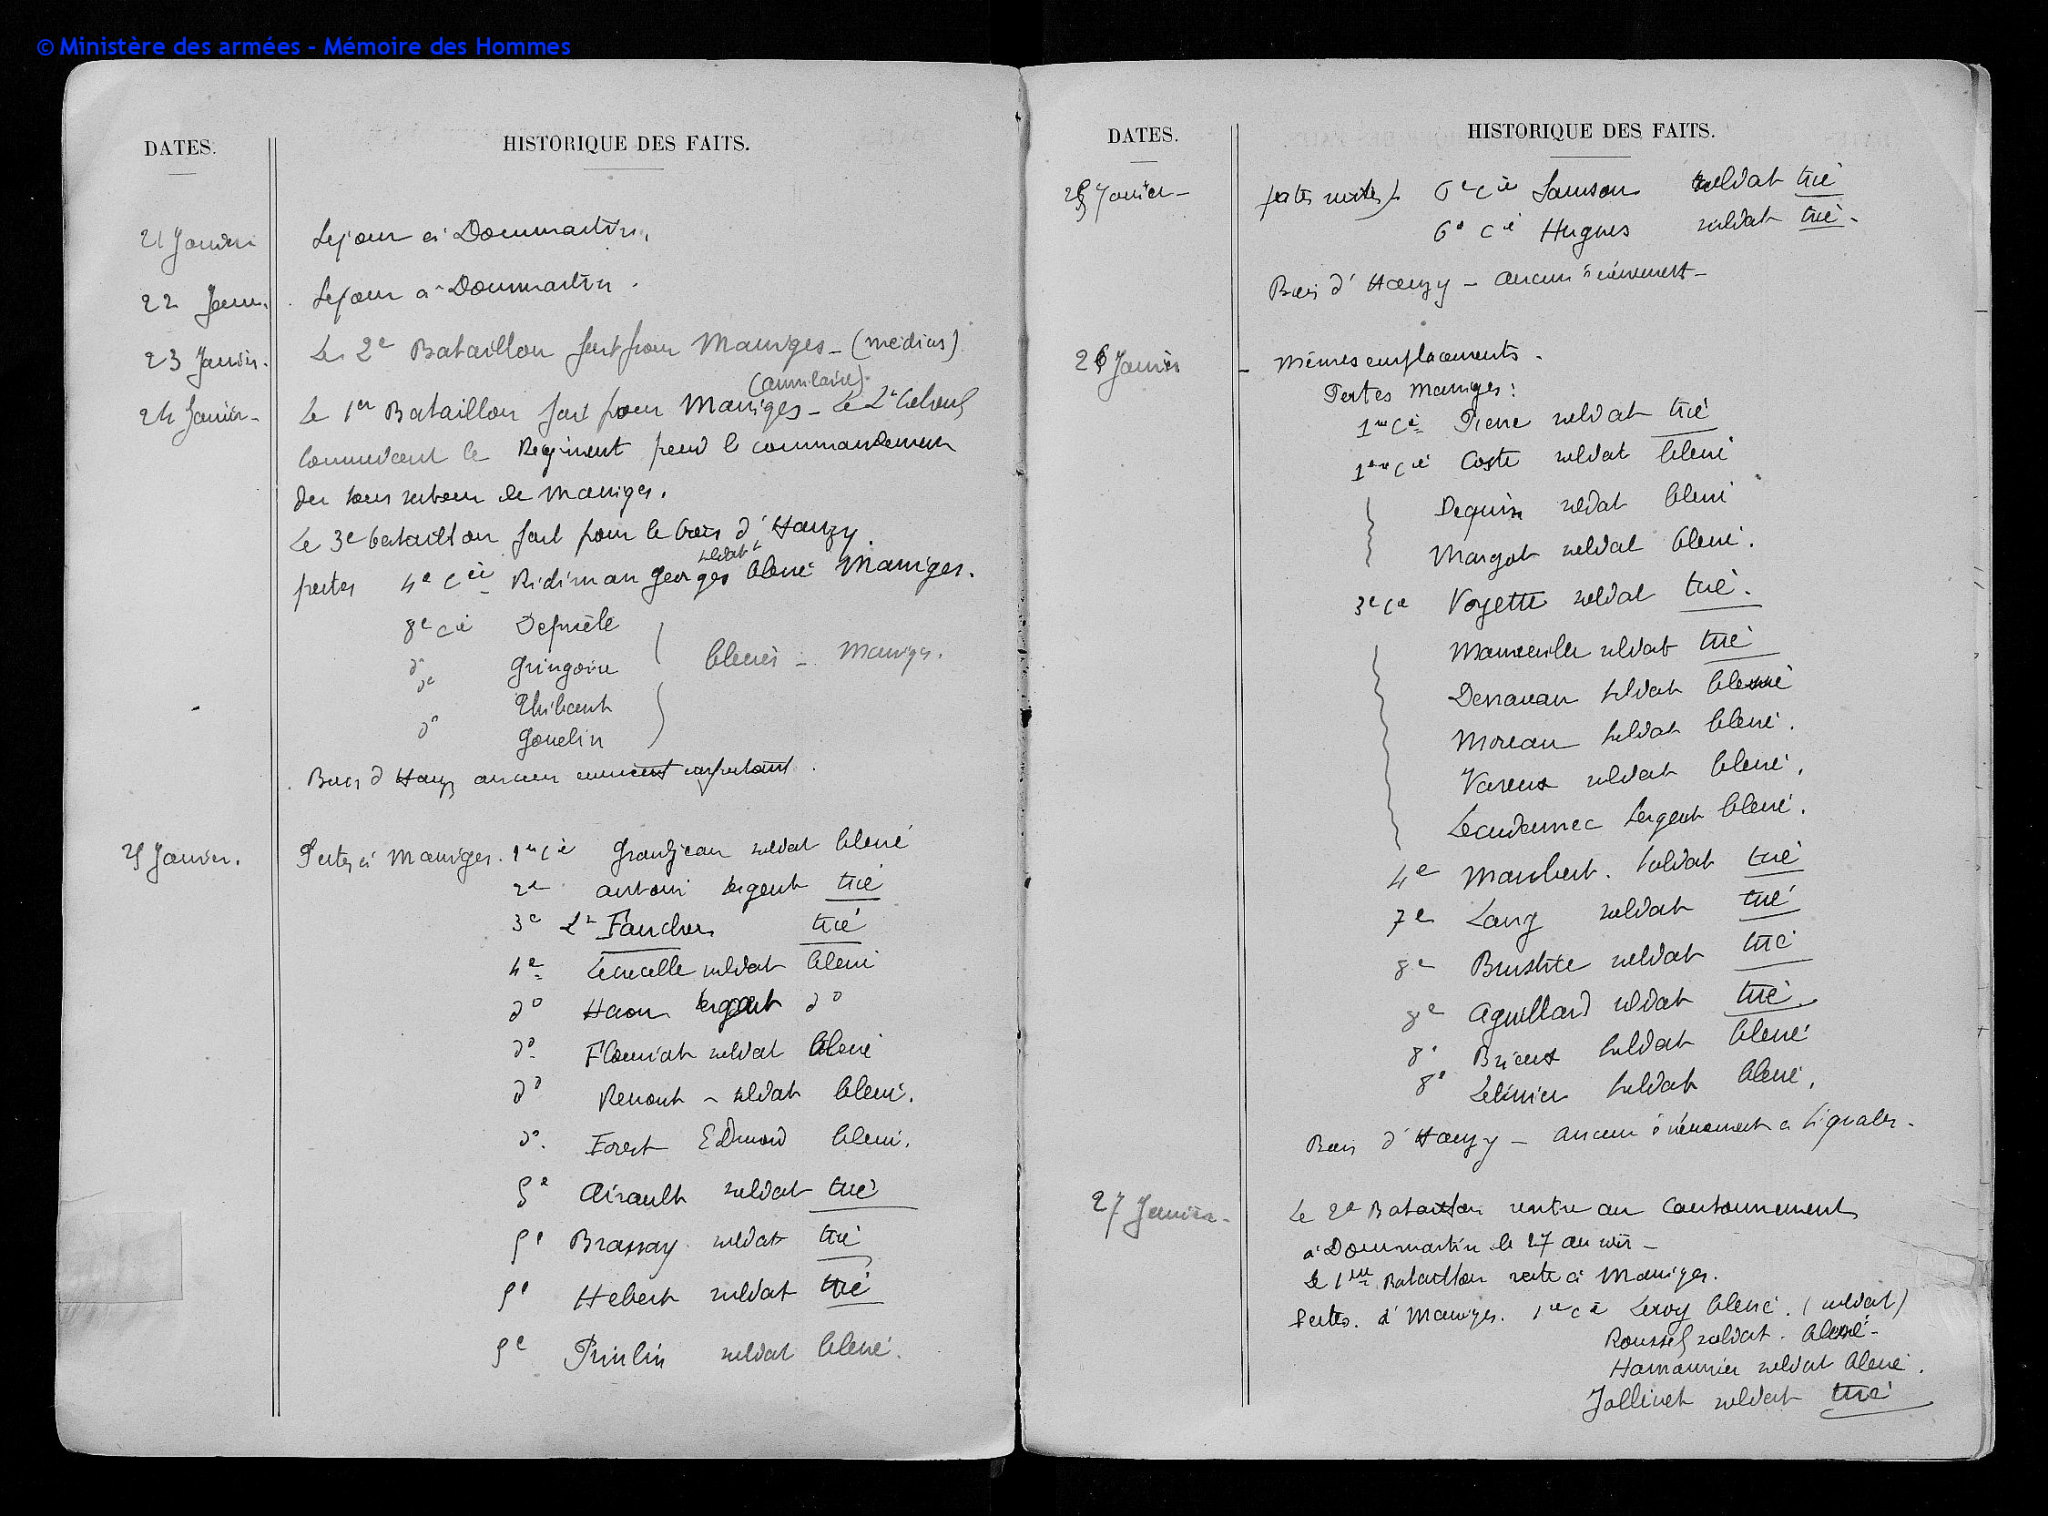 © Ministère des armées - Mémoire des Hommes
DATES.
HISTORIQUE DES FAITS.
21 Janvier Séjour à Dommartin.
22 Janv. Séjour à Dommartin.
23 Janvier. Le 2e Bataillon part pour Maurges - (médius)
(annulaire).
24 Janvier - Le 1er Bataillon part pour Maurges - Le Lt Colonel
Commandant le Régiment prend le commandement
du sous secteur de Maurges.
Le 3e bataillon part pour le bois d'Hauzy.
soldat
pertes 4e Cie Ridiman Georges blessé Maurges.
8e Cie
do Gringoire blessés - Maurges.
do Thibault
do Gouelin
Bois d Hauzy aucun important.
25 Janvier. Pertes à Maurges. 1re Cie Grandjean soldat blessé
2e Antoni sergent tué
3e Lt Faucher tué
4e Lecucelle soldat blessé
do Haon sergent do
do Flouriat soldat blessé
do Renout - soldat blessé.
do. Forest Edmond blessé.
5e Airault soldat tué
5e Brassay soldat tué
5e Hebert soldat tué
5e soldat blessé.
DATES.
HISTORIQUE DES FAITS.
25 Janvier - pertes 6e Cie Samson soldat tué
6e Cie Hugues soldat tué.
Bois d'Hauzy - aucun évènement -
26 Janvier - Mêmes emplacements.
Pertes Maurges :
1re Cie Pierre soldat tué
1ere Cie Coste soldat blessé
Dequin soldat blessé
Margot soldat blessé.
3e Cie Voyette soldat tué.
soldat tué
soldat blessé
Moreau soldat blessé.
Vareux soldat blessé.
Lecudennec Sergent blessé.
4e Maubert. Soldat tué
7e Lang soldat tué
8e soldat tué
8e Aguillard soldat tué.
8e Brieux soldat blessé
8e soldat blessé.
Bois d'Hauzy - aucun évènement à signaler.
27 Janvier. Le 2e Bataillon rentre au Cantonnement
à Dommartin le 27 au soir -
Le 1er Bataillon reste à Maurges.
Pertes. à Maurges. 1re Cie Leroy blessé. (soldat)
Roussel soldat. blessé -
Hamonnier soldat blessé.
Jollivet soldat tué